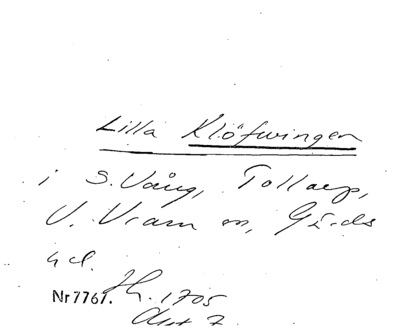 Lilla Klöfvingen
i S. Vång, Tollarp,
V. Vram sn, Gärds
hd.
Nr 7767. Jh. 1705
Akt 7